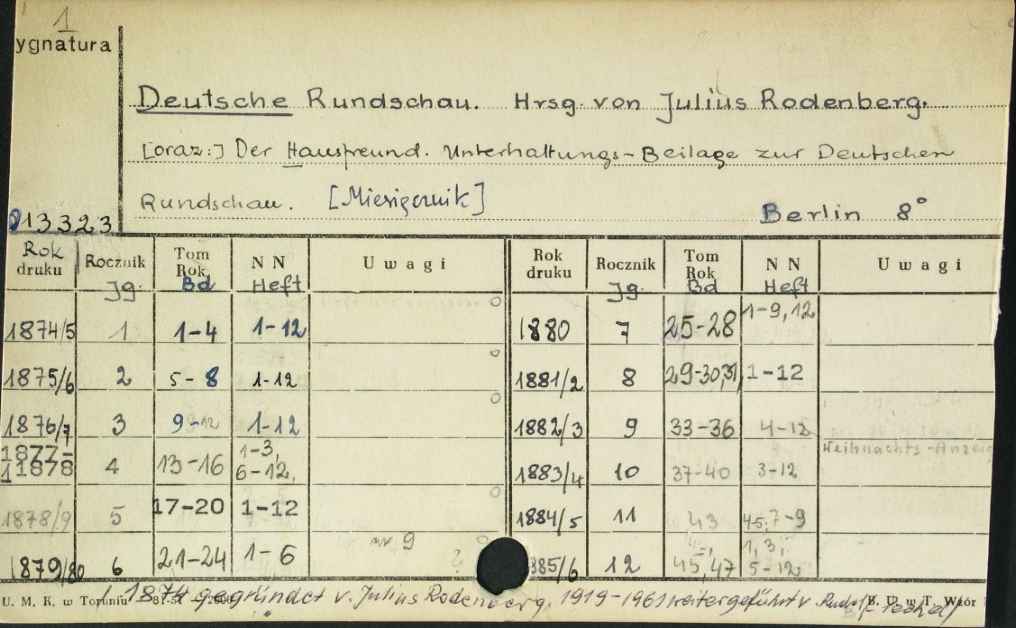 1
ygnatura
Deutsche Rundschau. Hrsg. von Julius Rodenberg.
[oraz:] Der Hausfreund. Unterhaltungs-Beilage zur Deutschen
Rundschau. [Miesięcznik]
Berlin 8°
013323
Rok druku Rocznik Jg. Tom Rok Bd NN Heft Uwagi Rok druku Rocznik Jg. Tom Rok Bd NN Heft Uwagi
1874/5 1 1-4 1-12 1880 7 25-28 1-9, 12
1875/6 2 5-8 1-12 1881/2 8 29-30, 31, 1-12
1876/7 3 9-12 1-12 1882/3 9 33-36 4-12
1877-1878 4 13-16 1-3, 6-12, 1883/4 10 37-40 3-12 Weihnachts-Anzeig
1878/9 5 17-20 1-12 1884/5 11 43 45, 7-9
1879/80 6 21-24 1-6 nr 9 885/6 12 45, 47 1, 3, 5-12
1874 gegründet v. Julius Rodenberg. 1919-1961 weitergeführt v. Rudolf Pechel
U. M. K. w Toruniu B. U. w T. Wzór